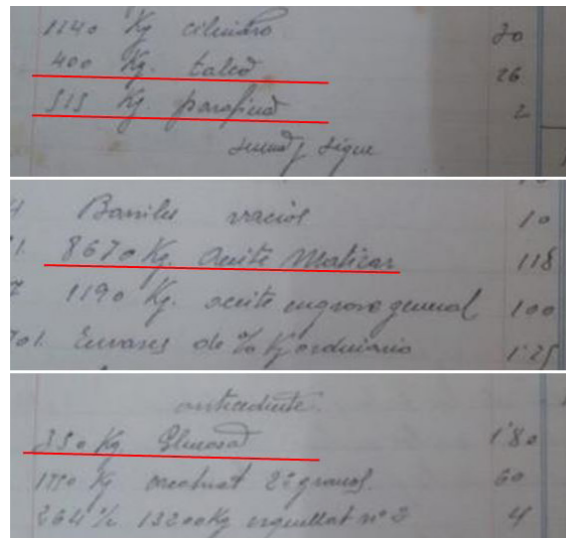 1140 Kg cilindro 20
400 Kg. talco 26
515 Kg. parafina 2
suma y sigue
Barriles vacios 10
8670 Kg. aceite 118
1190 Kg. aceite engrase general 100
Envases de Kg ordinario 1'25
antecedente.
350 Kg Glucosa 1'80
Kg 2º granos. 60
264 % 13200 Kg nº 2 4